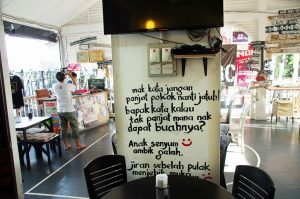 mak kata jangan
panjat pokok nanti jatuh
bapak kata kalau
tak panjat mana nak
dapat buahnya?
Anak senyum
ambik galah.
jiran sebelah pulak
menjebik muka